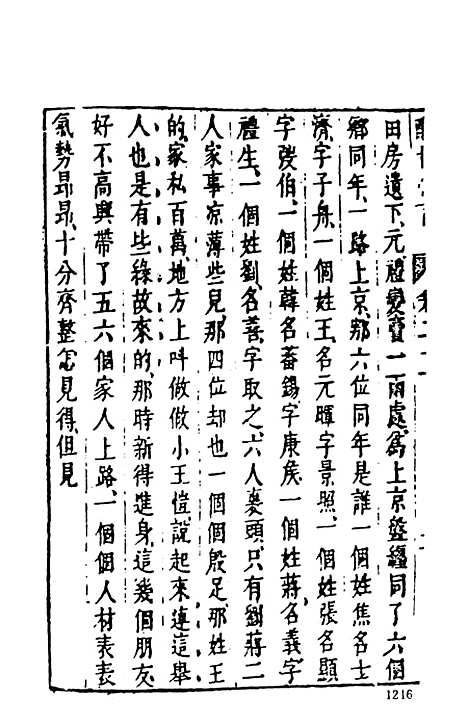 田房遺下、元禮變賣一兩處、爲上京盤纏同了六個
鄉同年、一路上京、那六位同年是誰一個姓焦名士
濟、字子舟、一個姓王、名元暉字景照、一個姓張名顯
字弢伯、一個姓韓名蕃錫、字康侯、一個姓蔣、名義字
禮生、一個姓劉、名善、字取之、六人裏頭、只有劉蔣二
人家事凉薄些兒、那四位却也一個個殷足、那姓王
的、家私百萬、地方上叫做做小王愷、說起來連這舉
人也是有些緣故來的、那時新得進身、這幾個朋友
好不高興帶了五六個家人上路、一個個人材表表
氣勢昂昂、十分齊整怎見得、但見
1216